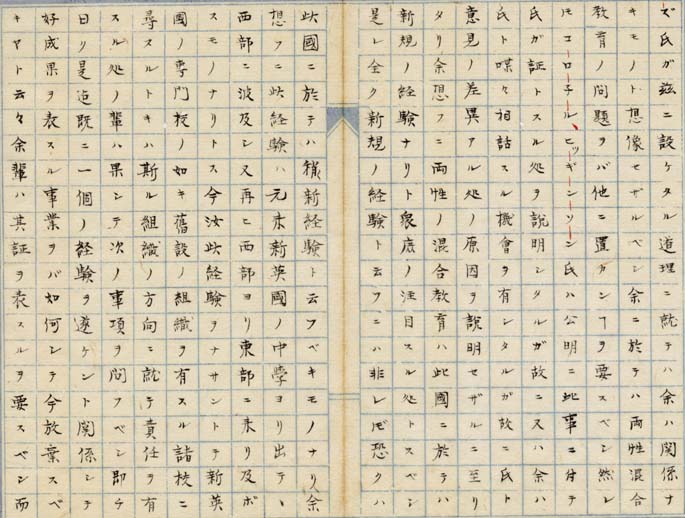 ズ氏ガ茲ニ設ケタル道理ニ就テハ余ハ関係ナ
キモノト想像セザルベシ余ニ於テハ両性混合
教育ノ問題ヲバ他ニ置カンヿヲ要スベシ然レ
𪜈コーロ子ルヒッギンソーン氏ハ公明ニ此事ニ付テ
氏ガ証トスル処ヲ説明シタルガ故ニ又ハ余ハ
氏ト喋々相話スル機會ヲ有シタルガ故ニ氏ト
意見ノ差異アル処ノ原因ヲ説明セザルニ至リ
タリ余想フニ両性ノ混合教育ハ此國ニ於テハ
新規ノ経験ナリト衆庶ノ注目スル処トスベシ
是レ全ク新規ノ経験ト云フニハ非レ𪜈恐クハ
此國ニ於テハ稍新経験ト云フベキモノナリ余
想フニ此経験ハ元来新英國ノ中學ヨリ出テヽ
西部ニ波及シ又再ヒ西部ヨリ東部ニ来リ及ボ
スモノナリトス今汝此経験ヲナサントテ新英
國ノ専門校ノ如キ舊設ノ組織ヲ有スル諸校ニ
尋スルトキハ斯ル組織ノ方向ニ就テ責任ヲ有
スル処ノ輩ハ果シテ次ノ事項ヲ問フベシ即チ
曰リ是迠既ニ一個ノ経験ヲ遂ケント関係シテ
好成果ヲ表スル事業ヲバ如何シテ今放棄スベ
キヤト云々余輩ハ其証ヲ表スルヲ要スベシ而